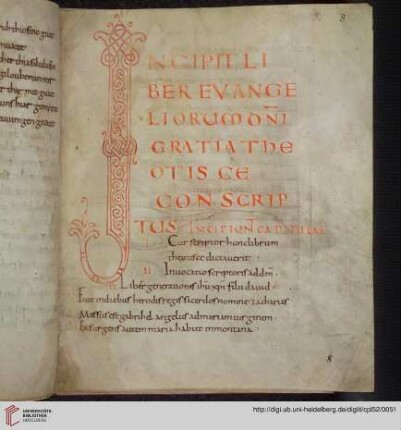 8
INCIPIT LI
BER EVANGE
LIORUM DNI
GRATIA THE
OTISCE
CONSCRIP
TUS INCIPIUNT CAPITULAE
Cur scriptor hunc librum
theotisce dictaverit
II Invocatio scriptoris ad dm
III Liber generationis ihu xpi filii david
Fuit in diebus herodis regis sacerdos nomine zacharias
Missus est gabrihel angelus ad mariam virginem
Exsurgens autem maria habiit in montana
8
UNIVERSITÄTS-
BIBLIOTHEK
HEIDELBERG
http://digi.ub.uni-heidelberg.de/diglit/cpl52/0051